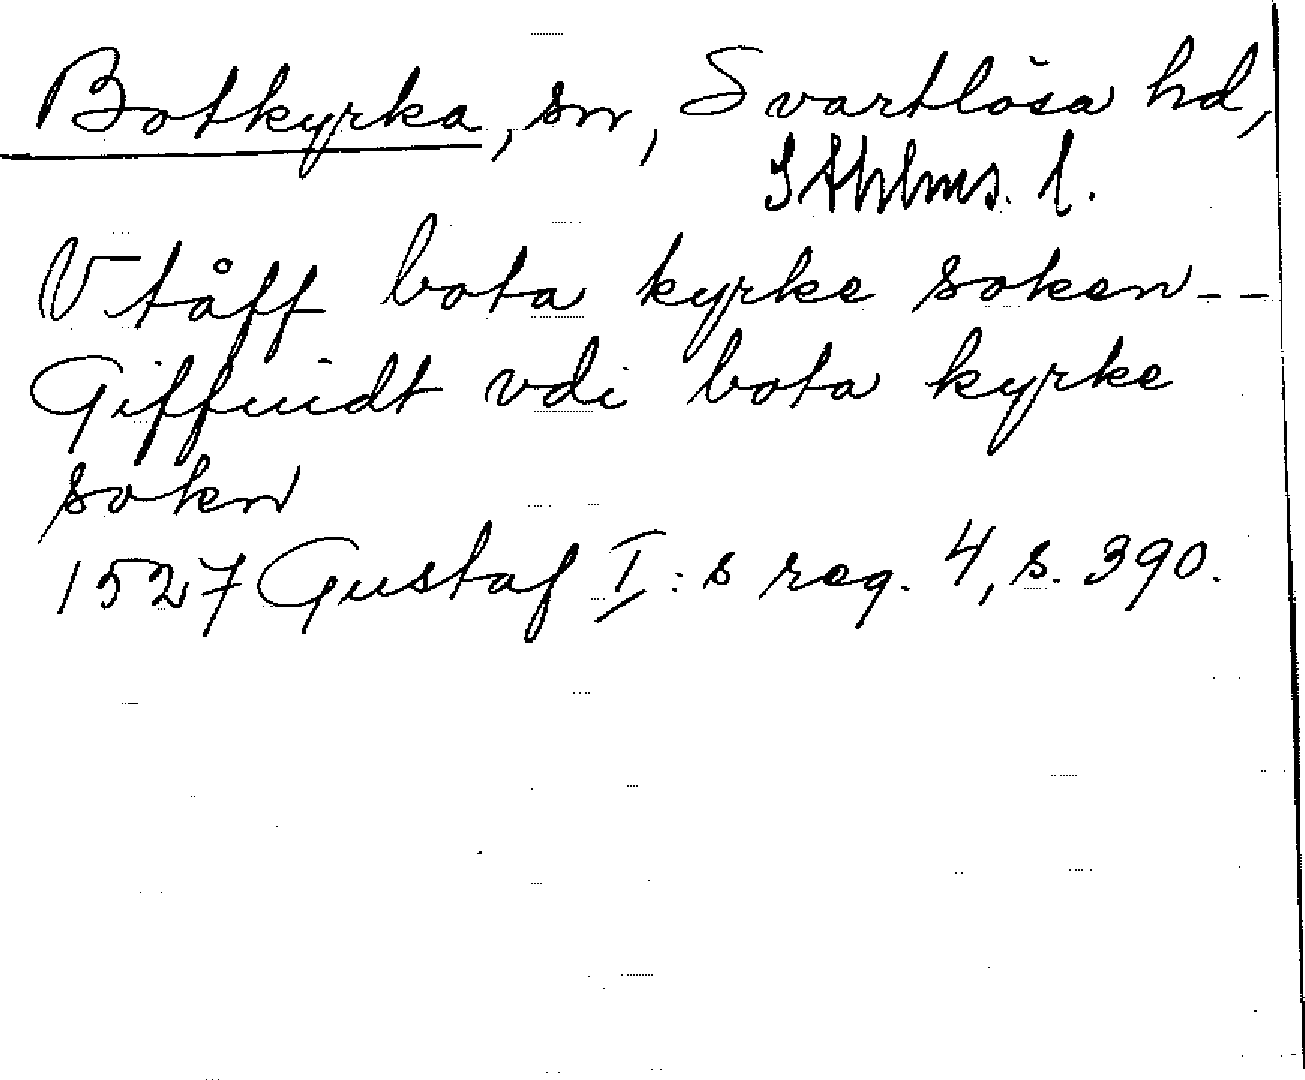 Botkyrka, sn, Svartlösa hd,
Sthlms. l.
Vtåff bota kyrke soken--
Giffuidt vdi bota kyrke
sokn
1527 Gustaf I:s reg. 4, s. 390.